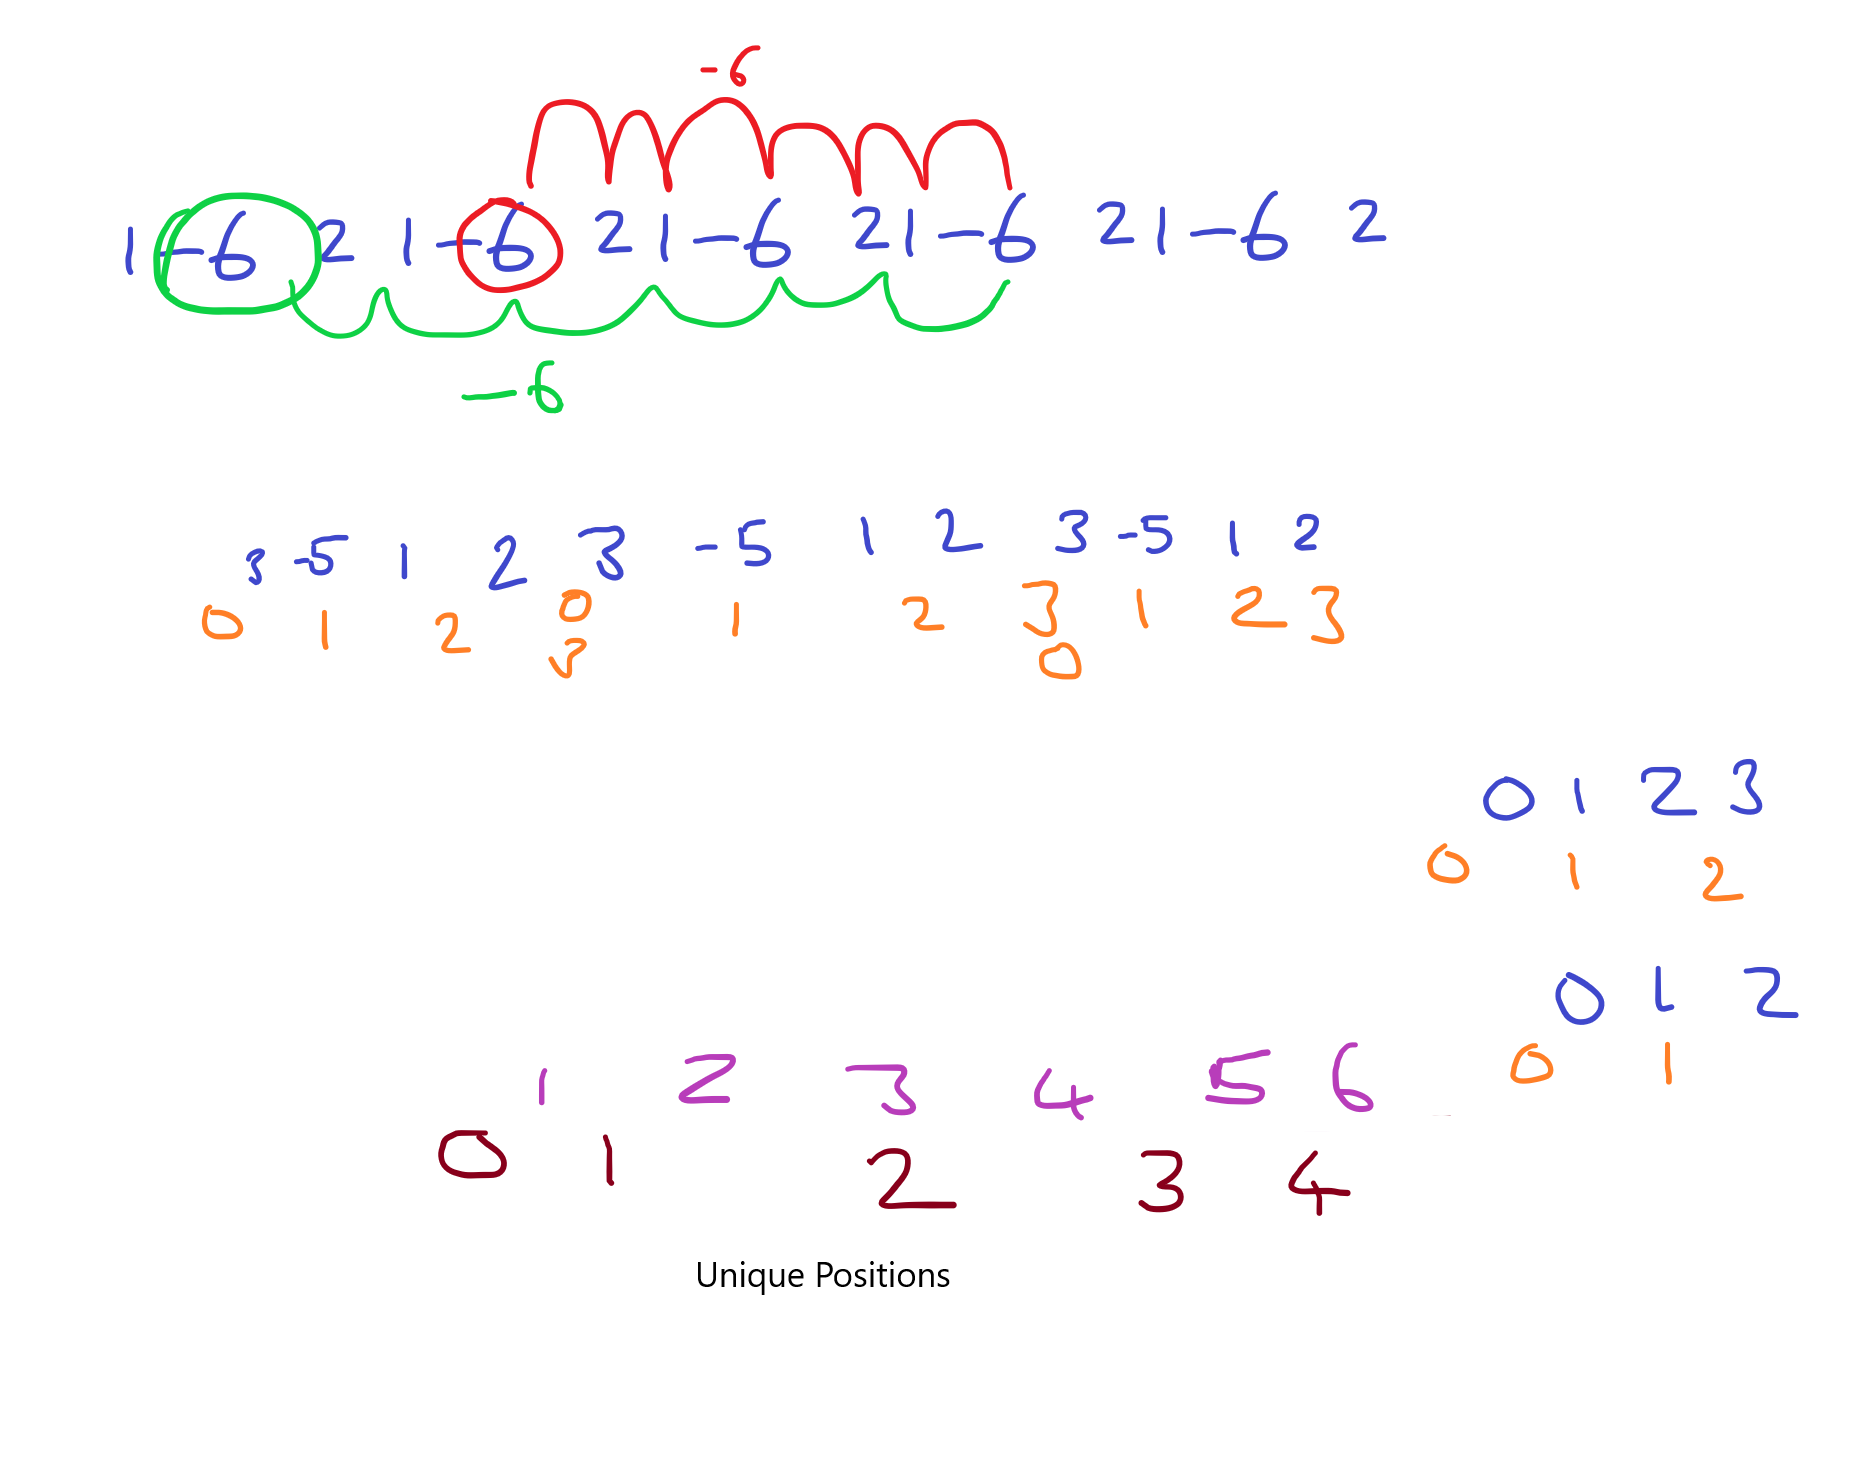 -6
1 -6 2 1 -6 2 1 -6 2 1 -6 2 1 -6 2
-6
3 -5 1 2 3 -5 1 2 3 -5 1 2
0 1 2 0 1 2 3 1 2 3
3 0
0 1 2 3
0 1 2
0 1 2
0 1
1 2 3 4 5 6
0 1 2 3 4
Unique Positions